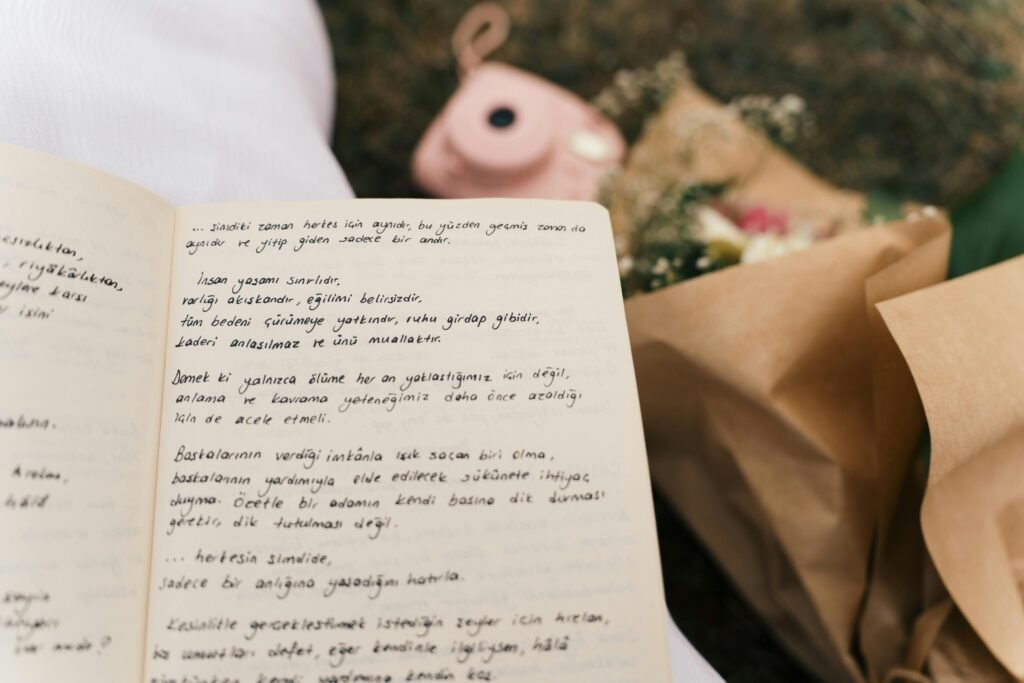 esizlikten,
riyâkârlıktan,
şeylere karşı
işini
hâlâ
... şimdiki zaman herkes için aynıdır, bu yüzden geçmiş zaman da
aynıdır ve yitip giden sadece bir andır.
İnsan yaşamı sınırlıdır,
varlığı akışkandır, eğilimi belirsizdir.
tüm bedeni çürümeye yatkındır, ruhu girdap gibidir,
kaderi anlaşılmaz ve ünü muallaktır.
Demek ki yalnızca ölüme her an yaklaştığımız için değil,
anlama ve kavrama yeteneğimiz daha önce azaldığı
için de acele etmeli.
Başkalarının verdiği imkânla ışık saçan biri olma,
başkalarının yardımıyla elde edilecek sükûnete ihtiyaç
duyma. Özetle bir adamın kendi başına dik durması
gerekir, dik tutulması değil.
... herkesin şimdide,
sadece bir anlığına yaşadığını hatırla.
Kesinlikle gerçekleştirmek istediğin şeyler için hızlan,
boş umutları defet, eğer kendinle ilgiliysen, hâlâ
kendi yardımına kendin koş.